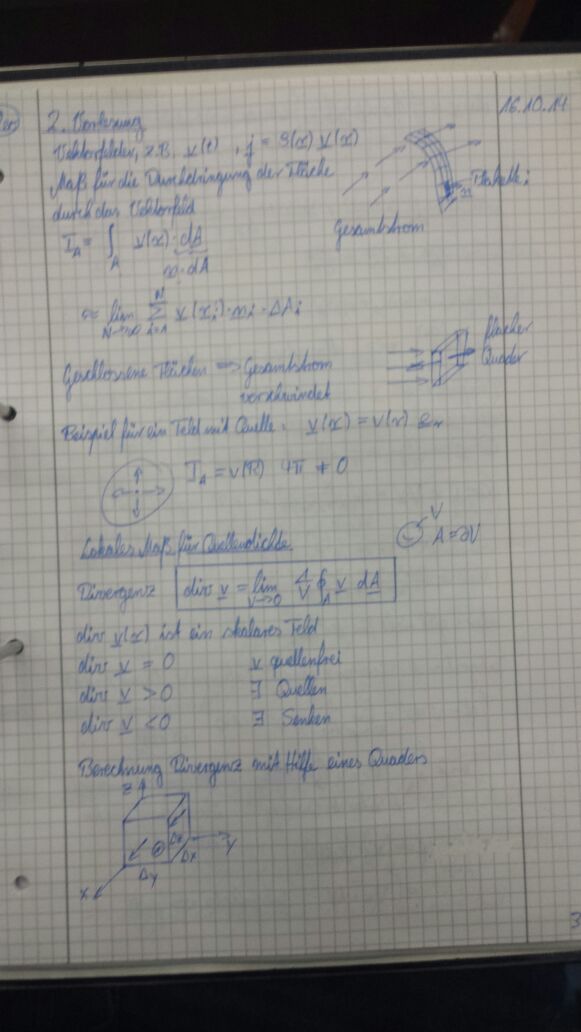 2. Vorlesung 16.10.14
Vektorfelder, z.B. v(t), j = S(x) v(x)
Maß für die Durchdringung der Fläche
durch das Vektorfeld
Gesamtstrom
n
I_A = ∫_A v(x) · dA
n · dA
≈ lim_{N→∞} Σ_{i=1}^{N} v(x_i) · n_i · ΔA_i
flacher
Quader
Geschlossene Flächen ⇒ Gesamtstrom
verschwindet
Beispiel für ein Feld mit Quelle: v(x) = v(r) e_r
I_A = v(R) 4π ≠ 0
Lokales Maß für Quellendichte
V
A = ∂V
Divergenz div v = lim_{V→0} 1/V ∮_A v dA
div v(x) ist ein skalares Feld
div v = 0 v quellenfrei
div v > 0 ∃ Quellen
div v < 0 ∃ Senken
Berechnung Divergenz mit Hilfe eines Quaders
z
Δz
Δx
y
Δy
x
3